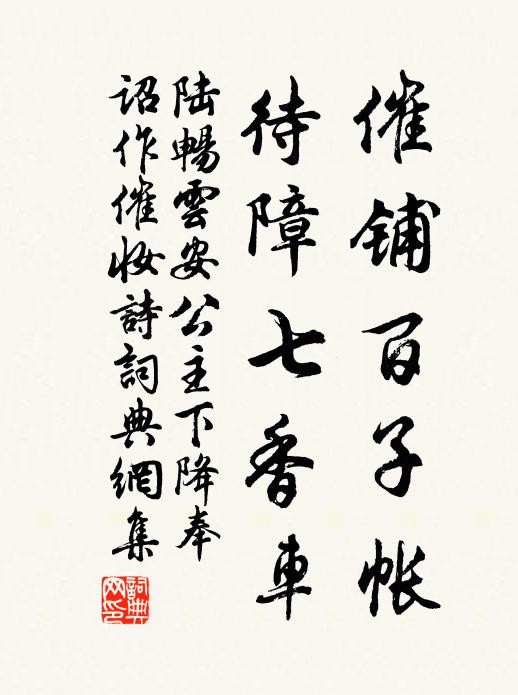 催鋪百子帳
待障七香車
陆暢雲安公主下降奉
詔作催妝詩詞典網集
詞典網印